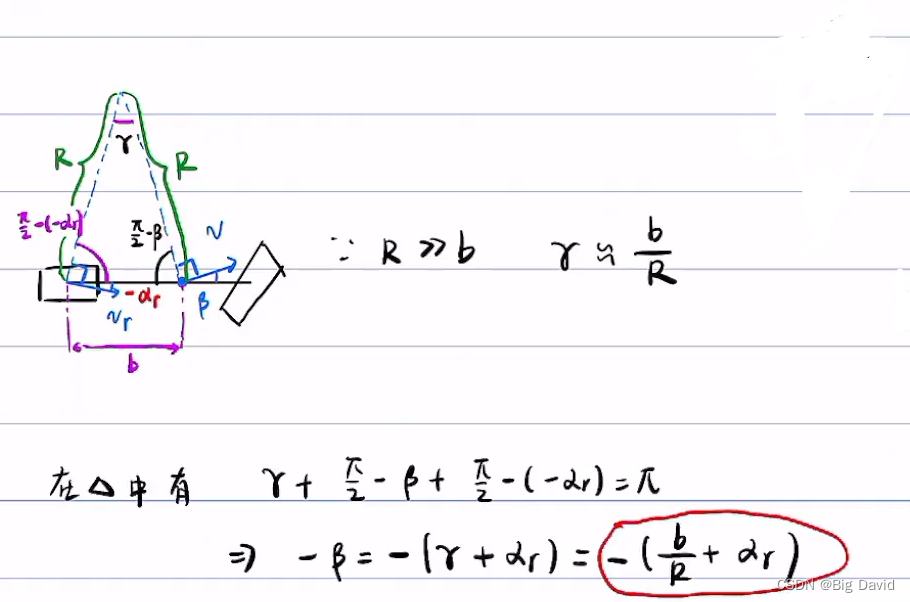 γ
R R
π/2-(-αr) π/2-β v
-αr β
vr
b
∵ R ≫ b γ ≈ b/R
在△中有 γ + π/2 - β + π/2 - (-αr) = π
⇒ -β = -(γ + αr) = -(b/R + αr)
CSDN @Big David